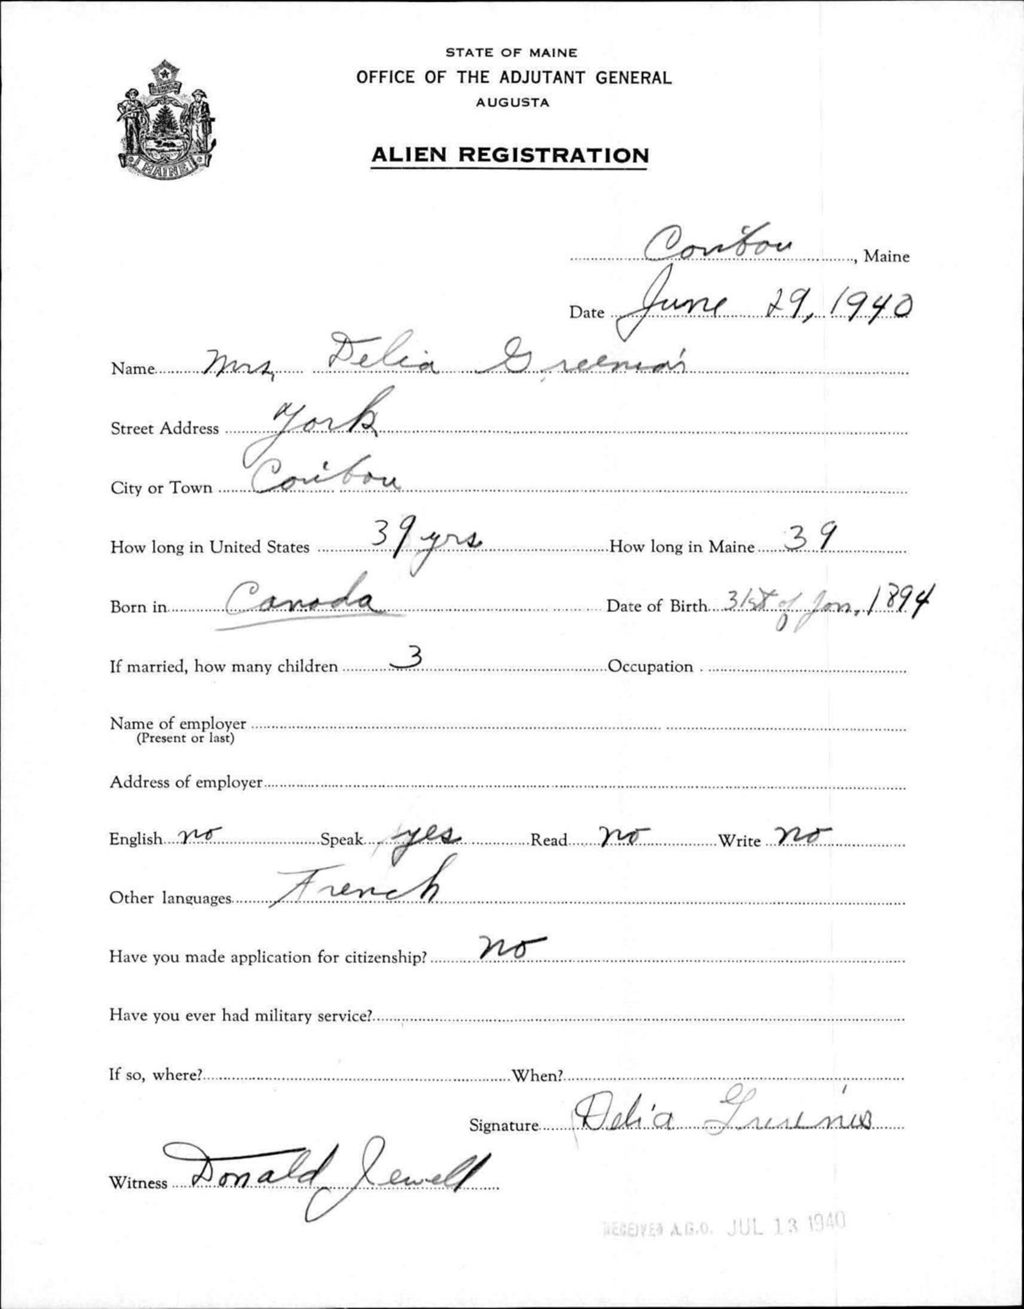 STATE OF MAINE
OFFICE OF THE ADJUTANT GENERAL
AUGUSTA
ALIEN REGISTRATION
MAINE
Caribou, Maine
Date June 29, 1940
Name Mrs, Delia
Street Address York
City or Town Caribou
How long in United States 39 yrs How long in Maine 39
Born in Canada Date of Birth 31st of Jan, 1894
If married, how many children 3 Occupation
Name of employer
(Present or last)
Address of employer
English no Speak yes Read no Write no
Other languages French
Have you made application for citizenship? no
Have you ever had military service?
If so, where? When?
Signature Delia
Witness Donald Jewell
RECEIVED A.G.O. JUL 13 1940